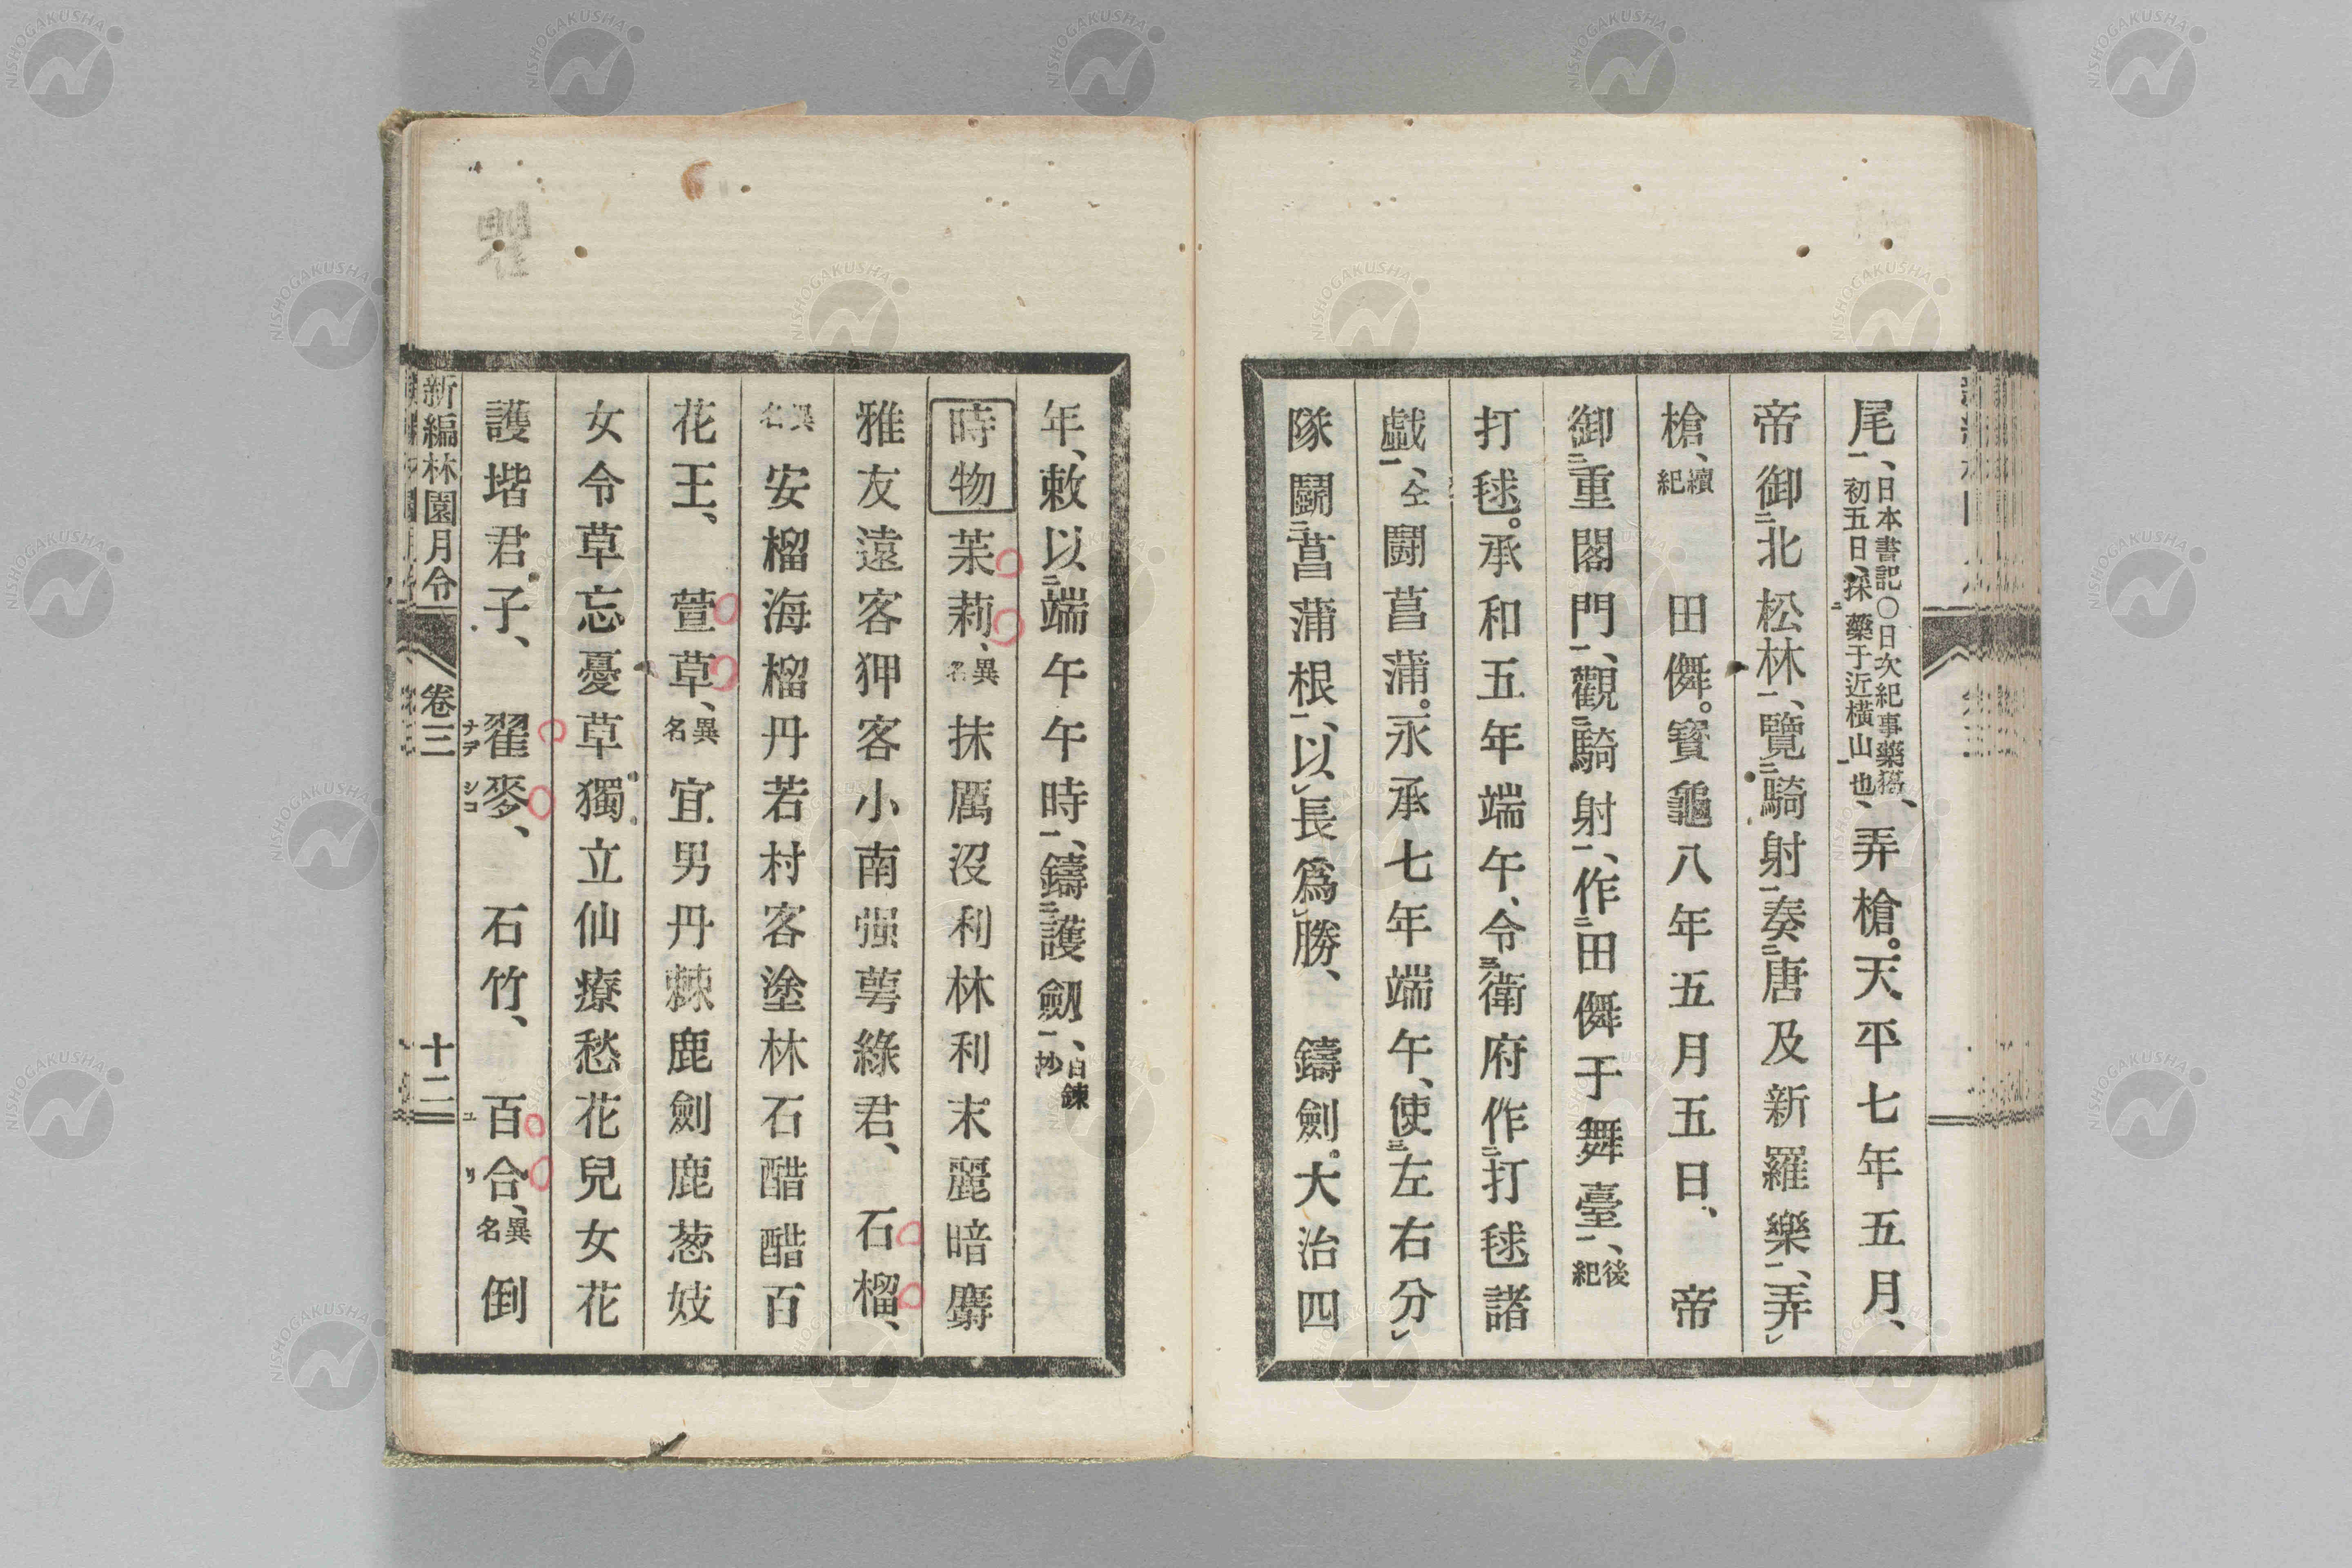 尾一、日本書記〇日次紀事藥獵、初五日、採二藥于近橫山一也、弄槍。天平七年五月、
帝御二北松林一、覽二騎射一奏二唐及新羅樂一、弄レ
槍、續紀 田儛。寶龜八年五月五日、帝
御二重閣門一、觀二騎射一、作二田儛于舞臺一、後紀
打毬。承和五年端午、令三衛府作二打毬諸
戯一、仝 闘菖蒲。永承七年端午、使三左右分レ
隊鬪二菖蒲根一、以レ長爲レ勝、鑄劍。大治四
年、敕以二端午午時一、鑄二護劔一、百鍊抄
時物 茉莉、異名 抹厲沒利林利末麗暗麝
雅友遠客狎客小南强萼綠君、石榴、
異名 安榴海榴丹若村客塗林石醋醋百
花王、萱草、異名 宜男丹棘鹿劍鹿葱妓
女令草忘憂草獨立仙療愁花兒女花
護堦君子、瞿麥、ナデシコ 石竹、百合、ユリ 異名 倒
新編林園月令 卷三 十二
瞿
NISHOGAKUSHA